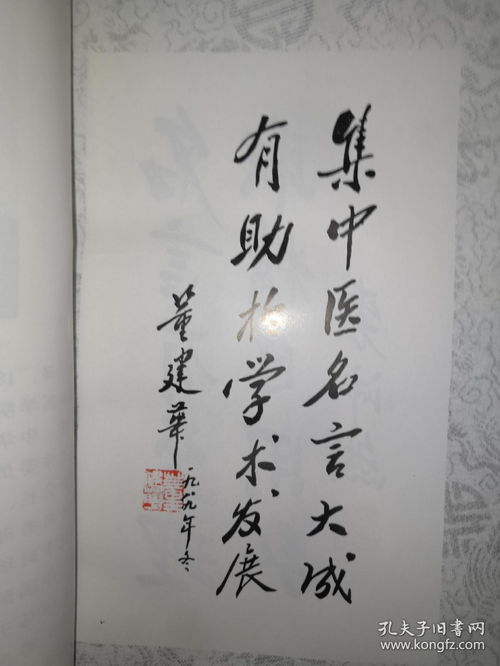 集中医名言大成
有助於学术发展
董建华
一九八九年冬
孔夫子旧书网
www.kongfz.com